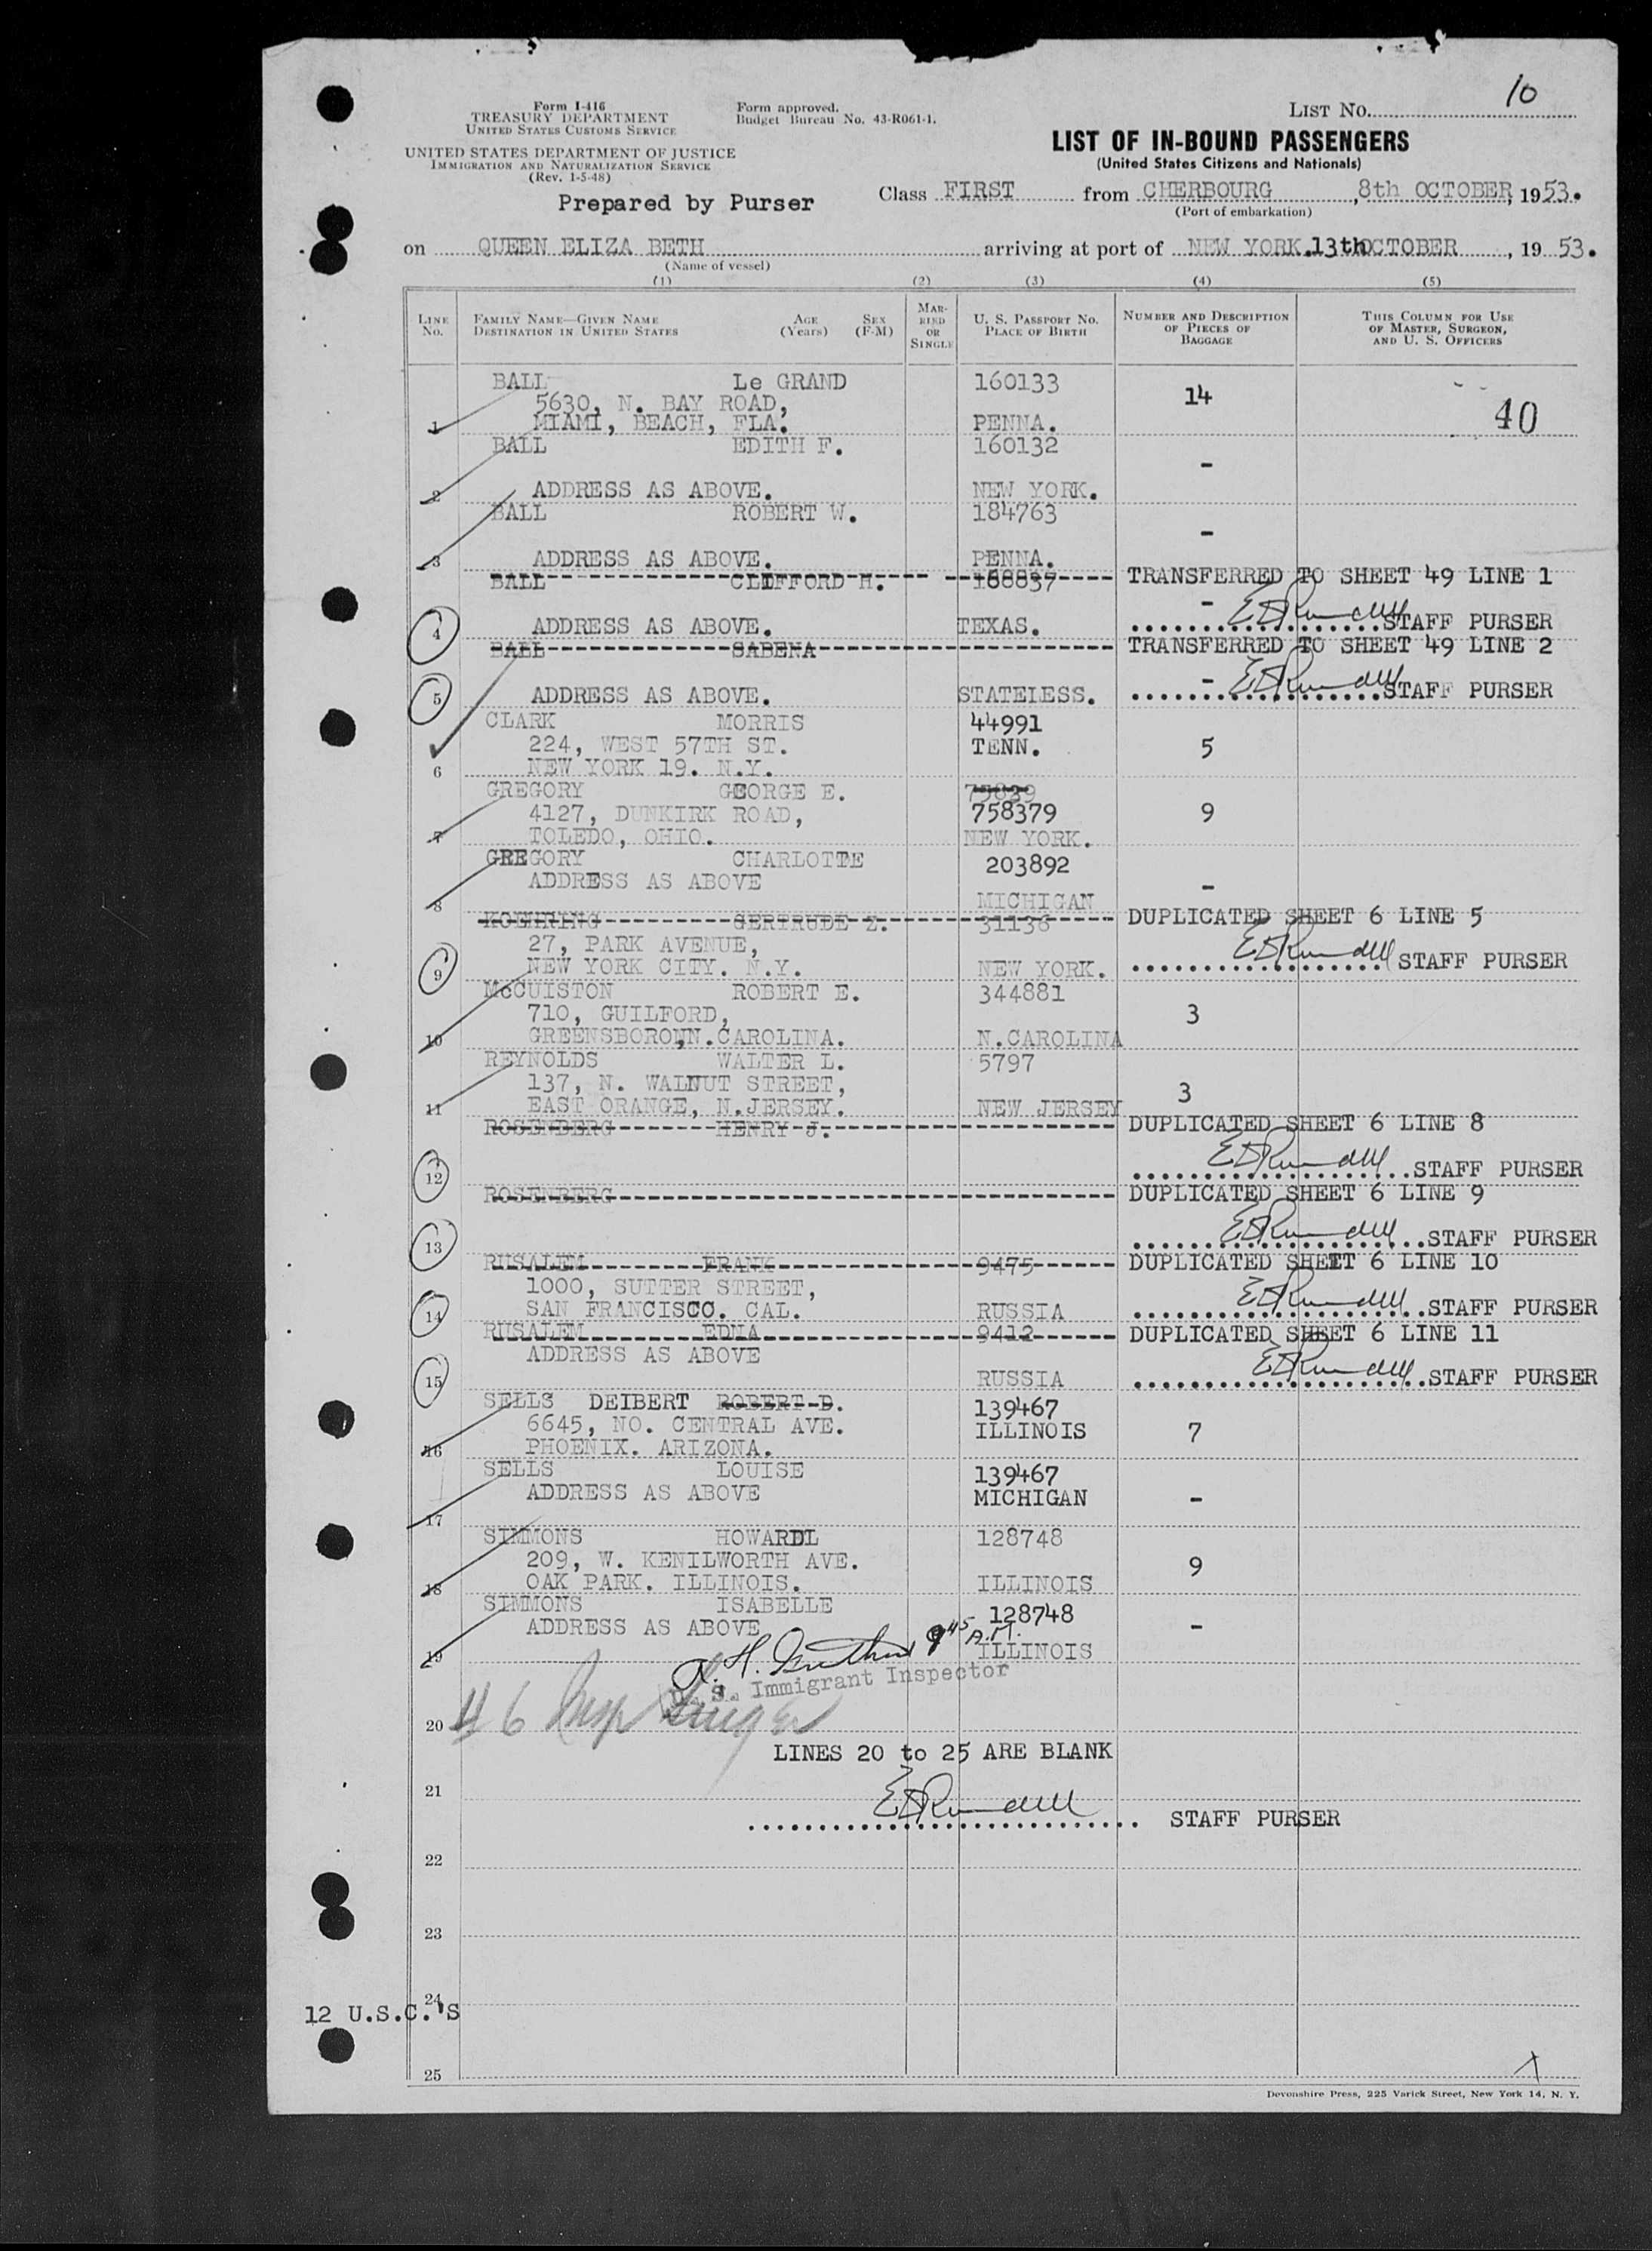 10
Form I-416
TREASURY DEPARTMENT
UNITED STATES CUSTOMS SERVICE
Form approved.
Budget Bureau No. 43-R061-1.
LIST NO.
UNITED STATES DEPARTMENT OF JUSTICE
IMMIGRATION AND NATURALIZATION SERVICE
(Rev. 1-5-48)
LIST OF IN-BOUND PASSENGERS
(United States Citizens and Nationals)
Prepared by Purser
Class FIRST from CHERBOURG, 8th OCTOBER, 1953.
(Port of embarkation)
on QUEEN ELIZA BETH arriving at port of NEW YORK.13thOCTOBER, 19 53.
(Name of vessel)
(1) (2) (3) (4) (5)
LINE No. FAMILY NAME—GIVEN NAME DESTINATION IN UNITED STATES AGE (Years) SEX (F-M) MARRIED OR SINGLE U. S. PASSPORT NO. PLACE OF BIRTH NUMBER AND DESCRIPTION OF PIECES OF BAGGAGE THIS COLUMN FOR USE OF MASTER, SURGEON, AND U. S. OFFICERS
BALL Le GRAND 160133
5630, N. BAY ROAD, 14
1 MIAMI, BEACH, FLA. PENNA. 40
BALL EDITH F. 160132
-
2 ADDRESS AS ABOVE. NEW YORK.
BALL ROBERT W. 184763
-
3 ADDRESS AS ABOVE. PENNA.
BALL CLIFFORD H. 168837 TRANSFERRED TO SHEET 49 LINE 1
-
4 ADDRESS AS ABOVE. TEXAS. STAFF PURSER
BALL SABENA TRANSFERRED TO SHEET 49 LINE 2
-
5 ADDRESS AS ABOVE. STATELESS. STAFF PURSER
CLARK MORRIS 44991
224, WEST 57TH ST. TENN. 5
6 NEW YORK 19. N.Y.
GREGORY GEORGE E. 75839
4127, DUNKIRK ROAD, 758379 9
7 TOLEDO, OHIO. NEW YORK.
GREGORY CHARLOTTE 203892
ADDRESS AS ABOVE -
8 MICHIGAN
KOEHRING GERTRUDE Z. 31136 DUPLICATED SHEET 6 LINE 5
27, PARK AVENUE,
9 NEW YORK CITY. N.Y. NEW YORK. STAFF PURSER
McCUISTON ROBERT E. 344881
710, GUILFORD, 3
10 GREENSBORO,N.CAROLINA. N.CAROLINA
REYNOLDS WALTER L. 5797
137, N. WALNUT STREET, 3
11 EAST ORANGE, N.JERSEY. NEW JERSEY
ROSENBERG HENRY J. DUPLICATED SHEET 6 LINE 8
12 STAFF PURSER
ROSENBERG DUPLICATED SHEET 6 LINE 9
13 STAFF PURSER
RUSALEM FRANK 9475 DUPLICATED SHEET 6 LINE 10
1000, SUTTER STREET,
14 SAN FRANCISCO. CAL. RUSSIA STAFF PURSER
RUSALEM EDNA 9412 DUPLICATED SHEET 6 LINE 11
ADDRESS AS ABOVE
15 RUSSIA STAFF PURSER
SELLS DEIBERT ROBERT D. 139467
6645, NO. CENTRAL AVE. ILLINOIS 7
16 PHOENIX. ARIZONA.
SELLS LOUISE 139467
ADDRESS AS ABOVE MICHIGAN -
17
SIMMONS HOWARDL 128748
209, W. KENILWORTH AVE. 9
18 OAK PARK. ILLINOIS. ILLINOIS
SIMMONS ISABELLE 128748
ADDRESS AS ABOVE -
9 45 A.M.
19 ILLINOIS
U. S. Immigrant Inspector
20 46 Insp
LINES 20 to 25 ARE BLANK
21
STAFF PURSER
22
23
24
12 U.S.C.'S
25
Devonshire Press, 225 Varick Street, New York 14, N. Y.